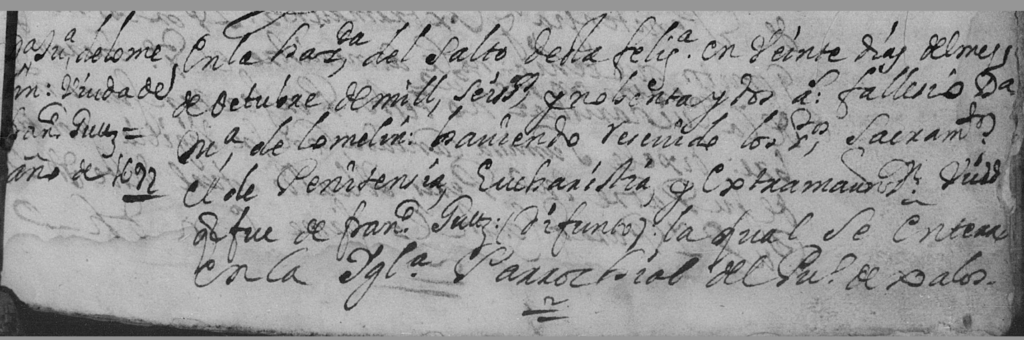 Dª Mª de lome
lin: Viuda de
fran.co Gutz =
año de 1692
En la haz.da del Salto desta felig.ª en Veinte dias del mes
de octubre de mill, seis.s y nobenta y dos a.s fallesio Dª
Mª, de lomelin: haviendo resevido los S.tos Sacram.tos
el de Penitensia, Eucharistia, y Extremaun.on Viuda
q fue de fran.co Gutz: (difunto) la qual se enterro
En la Ygl.ª Parrochial del Pu.o de Palos.